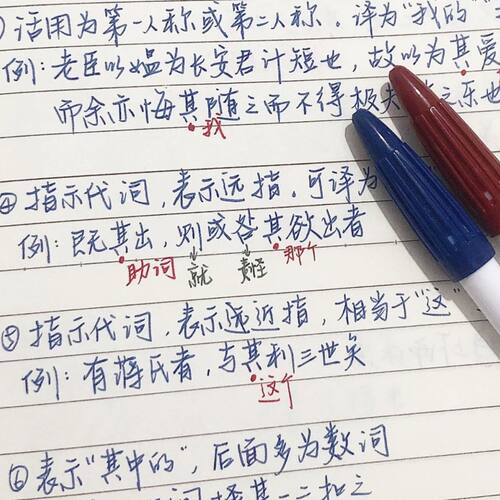 活用为第一人称或第二人称。译为"我的"
例：老臣以媪为长安君计短也，故以为其爱
而余亦悔其随之而不得极夫 之乐也
我
④指示代词，表示远指。可译为
例：既其出，则或咎其欲出者
助词 就 责怪 那个
⑤指示代词，表示近指，相当于"这"
例：有蒋氏者，专其利三世矣
这个
⑥表示"其中的"，后面多为数词